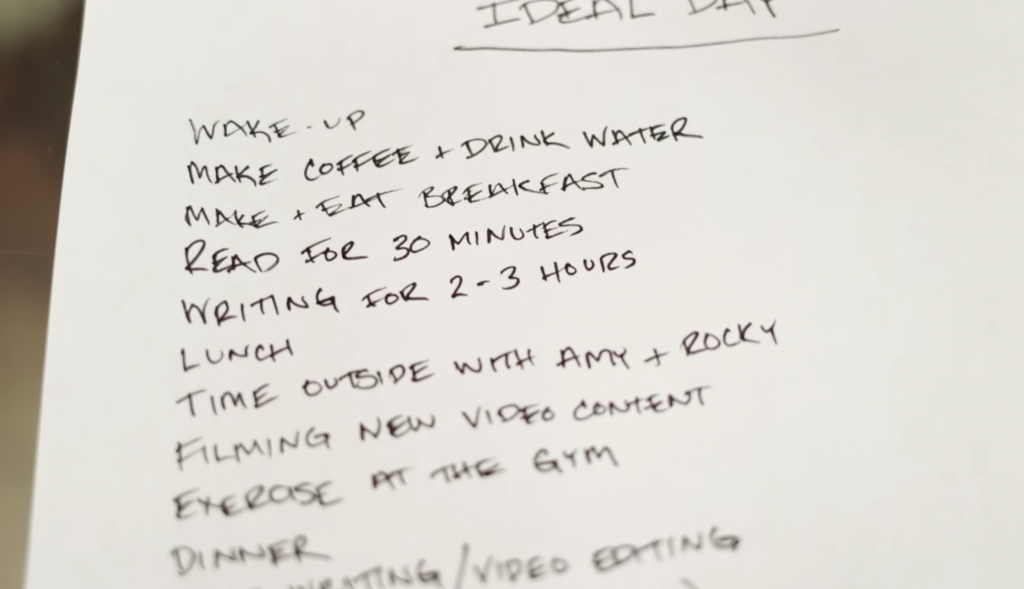 IDEAL DAY
WAKE-UP
MAKE COFFEE + DRINK WATER
MAKE + EAT BREAKFAST
READ FOR 30 MINUTES
WRITING FOR 2-3 HOURS
LUNCH
TIME OUTSIDE WITH AMY + ROCKY
FILMING NEW VIDEO CONTENT
EXERCISE AT THE GYM
DINNER
WRITING/VIDEO EDITING